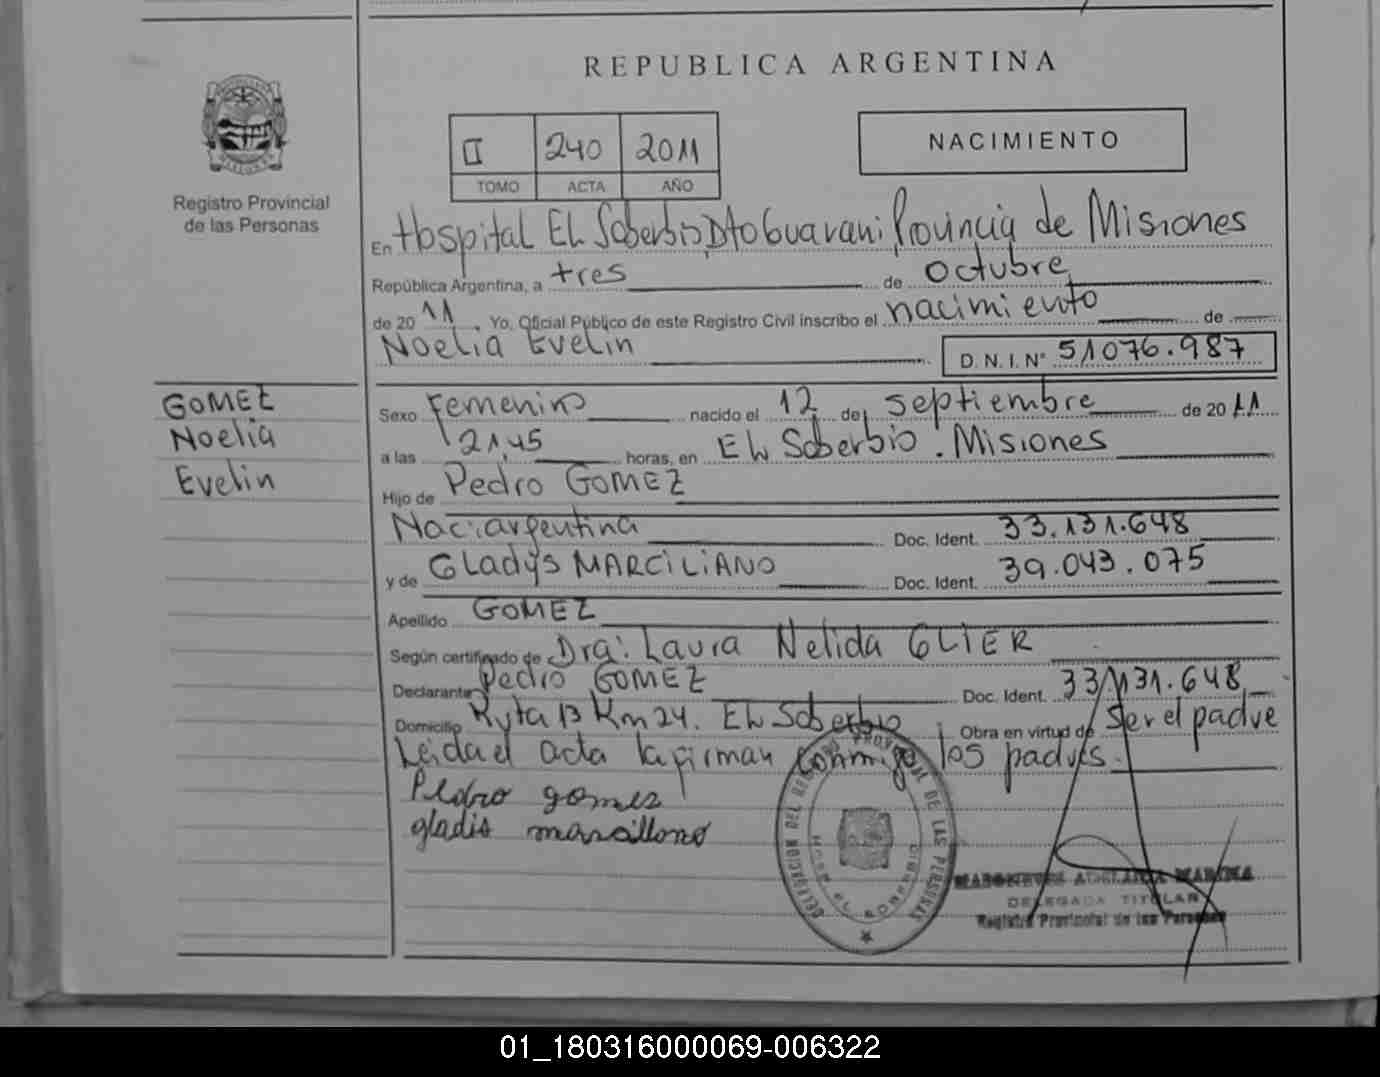 REPUBLICA ARGENTINA
Registro Provincial
de las Personas
II 240 2011
TOMO ACTA AÑO
NACIMIENTO
En Hospital El Soberbio Dto Guarani Provincia de Misiones
República Argentina, a tres de octubre
de 2011. Yo, Oficial Público de este Registro Civil inscribo el nacimiento de
Noelia Evelin D. N. I. N° 51076.987
GOMEZ
Noelia
Evelin
Sexo Femenino nacido el 12 de septiembre de 2011
a las 21,45 horas, en El Soberbio . Misiones
Hijo de Pedro GOMEZ
Nac: argentina Doc. Ident. 33.131.648
y de Gladys MARCiLiANO Doc. Ident. 39.043.075
Apellido GOMEZ
Según certificado de Dra: Laura Nelida GLIER
Declarante Pedro GOMEZ Doc. Ident. 33.131.648
Domicilio Ruta 13 Km 24. El Soberbio Obra en virtud de ser el padre
Leida el acta la firman conmigo los padres.
Pedro gomez
gladis
DELEGACION DEL REGISTRO PROVINCIAL DE LAS PERSONAS
HOSP. EL SOBERBIO
ADELAIDA MARINA
DELEGADA TITULAR
Registro Provincial de las Personas
01_180316000069-006322